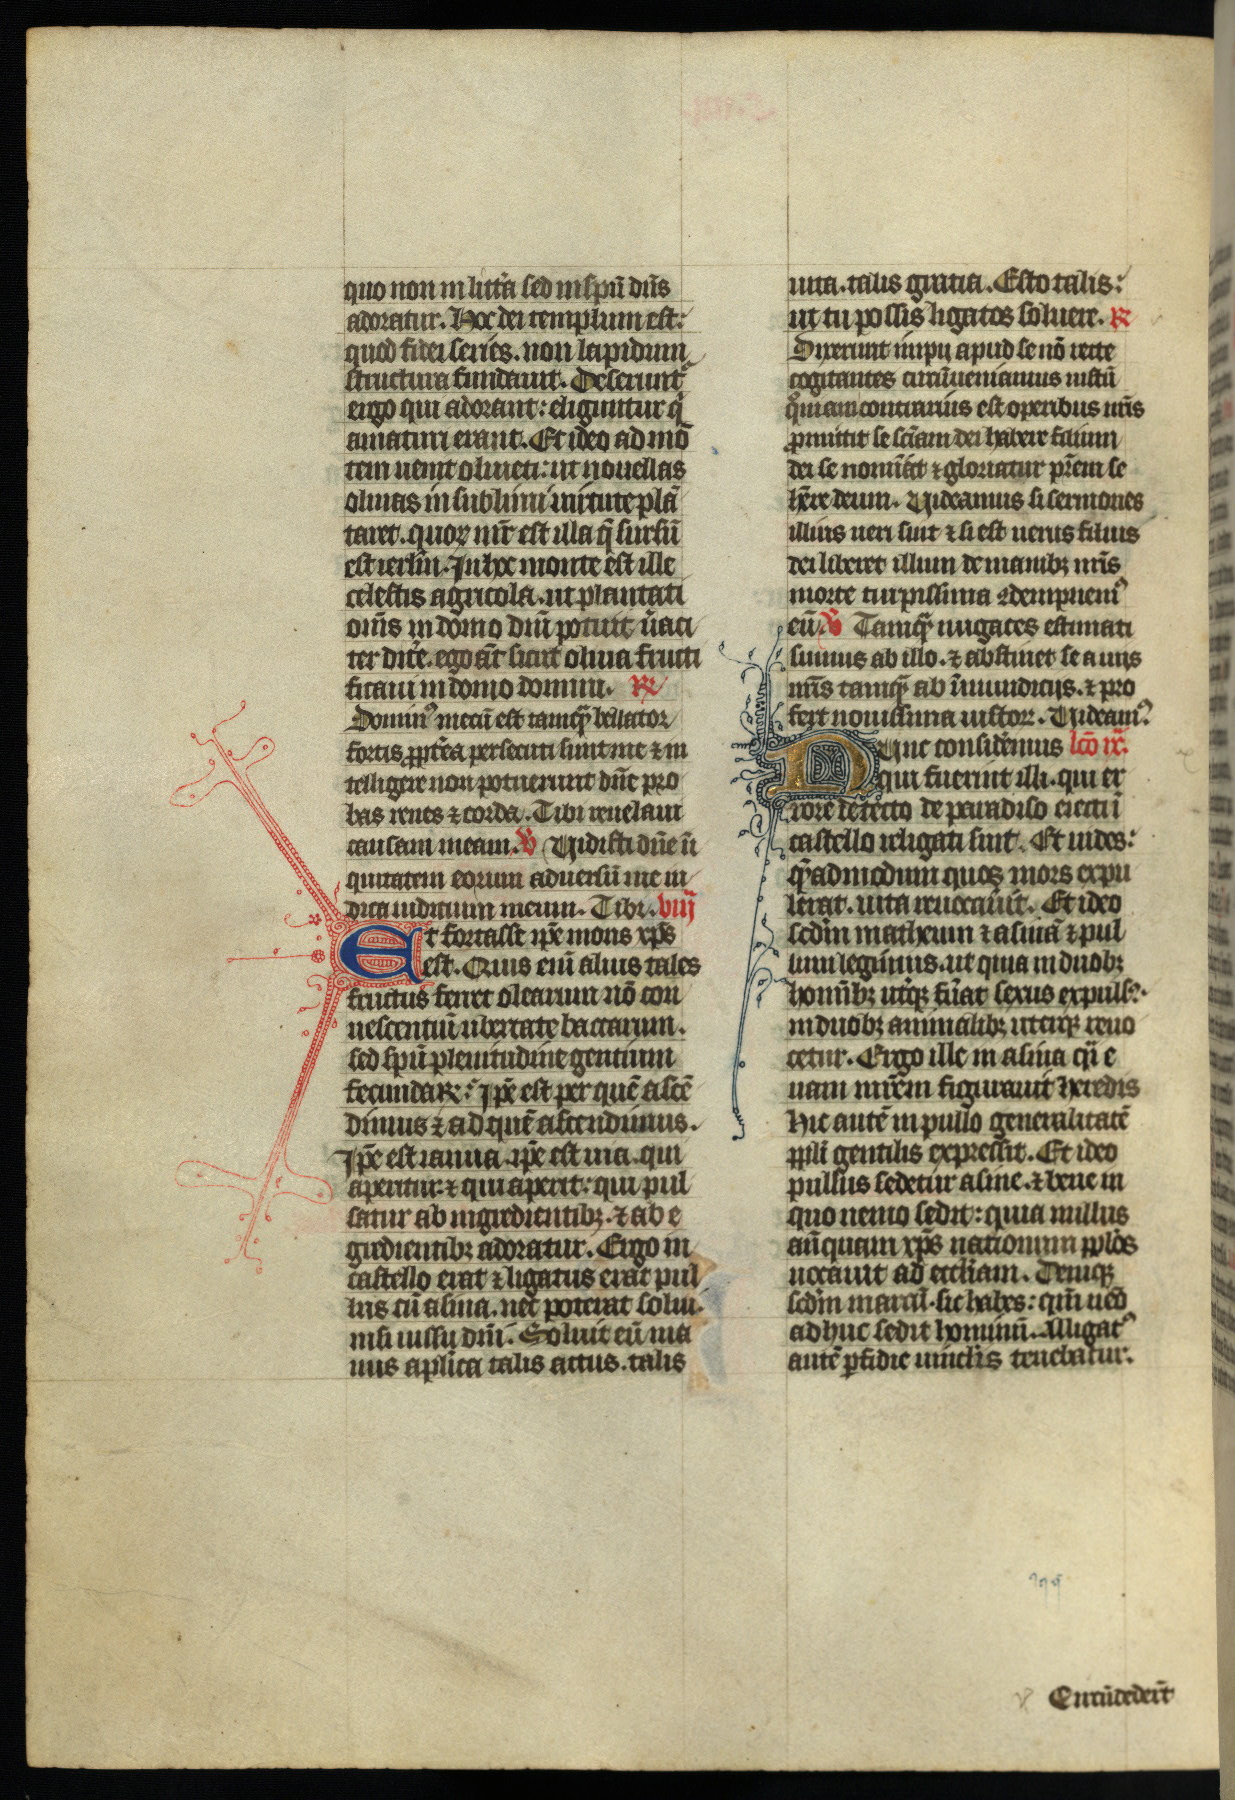 quo non in litt̓a sed in spū dn̄s
adoratur. Hoc dei templum est:
quod fidei series. non lapidum
structura fundauit. Deserunt᷑
ergo qui adorant: eliguntur q̇
amaturi erant. Et ideo ad mō
tem uenit oliueti: ut nouellas
oliuas in sublimi uirtute plā
taret. quoꝝ mr̄ est illa q̄ sursū
est ierlm̄. In hoc monte est ille
celestis agricola. ut plantati
om̄s in domo dn̄i potuit ūaci
ter dic̓e. ego aūt sicut oliua fructi
ficaui in domo domini. ℟
Dominꝰ mecū est tamqȝ bellator
fortis ꝓpt̓ea persecuti sunt me ⁊ in
telligere non potuerunt dn̄e pro
bas renes ⁊ corda. Tibi reuelaui
causam meam. ℣ Uidisti dn̄e in̄
quitatem eorum aduersū me iu
dica iudicium meum. Tibi. viij
Et fortasse ip̄e mons xp̄s
est. Quis eni̅ alius tales
fructus ferret olearum nō con
uescentiū ubertate baccarum.
sed spū plenitudine gentium
fecundaꝝ: Ip̄e est per quē ascē
dimus ⁊ ad quē ascendimus.
Ip̄e est ianua. ip̄e est uia. qui
aperitur: ⁊ qui aperit: qui pul
satur ab ingredientibꝫ. ⁊ ab e
gredientibꝫ adoratur. Ergo in
castello erat ⁊ ligatus erat pul
lus cū asina. nec poterat solui.
nisi iussu dn̄i. Soluit eū ma
nus aplīca talis actus. talis
uita. talis gratia. Esto talis:
ut tu possis ligatos soluere. ℟
Dixerunt impij apud se nō recte
cogitantes circūueniamus iustū
qm̄iam contrarius est operibus nr̄is
ꝓmittit se scīam dei habere filium
dei se noīat ⁊ gloriatur pr̄em se
hr̄e deum. Uideamus si sermones
illius ueri sint ⁊ si est uerus filius
dei liberet illum de manibꝫ nr̄is
morte turpissima ꝯdempnemꝰ
eū. ℣ Tamqȝ nugaces estimati
sumus ab illo. ⁊ abstinet se a uijs
nr̄is tamqȝ ab īmundicijs. ⁊ pro
fert nouissima iustorꝝ. Uideamꝰ
Nunc consid̓emus lc̄o ix.
qui fuerint illi. qui er
rore detecto de paradiso eiecti ī
castello religati sint. Et uides:
quēadmodum quos mors expu
lerat. uita reuocauit. Et ideo
scd̄m matheum ⁊ asinā ⁊ pul
lum legimus. ut quia in duobꝫ
homībꝫ ut̓qꝫ fūat sexus expulsꝰ.
in duobꝫ animalibꝫ uterqꝫ reuo
cetur. Ergo ille in asina q̄si e
uam mr̄em figurauit heredis
hic autē in pullo generalitatē
ppli gentilis expressit. Et ideo
pullus sedetur asine. ⁊ bene in
quo nemo sedit: quia nullus
an̄quam xp̄s nationum pplos
uocauit ad eccliam. Deniqꝫ
scd̄m marcū. sic habes: quē nēo
adhuc sedit hominū. Alligatꝰ
autē ꝑfidie uinclis tenebatur.
Circūdederūt